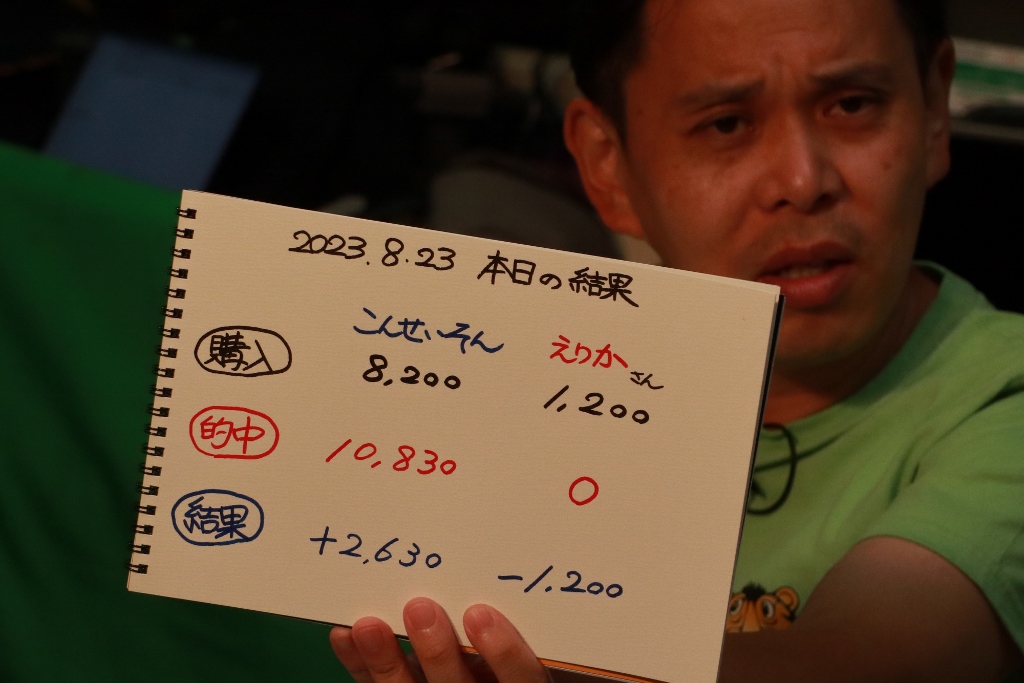 2023.8.23 本日の結果
こんせいそん えりかさん
購入 8,200 1,200
的中 10,830 0
結果 +2,630 -1,200